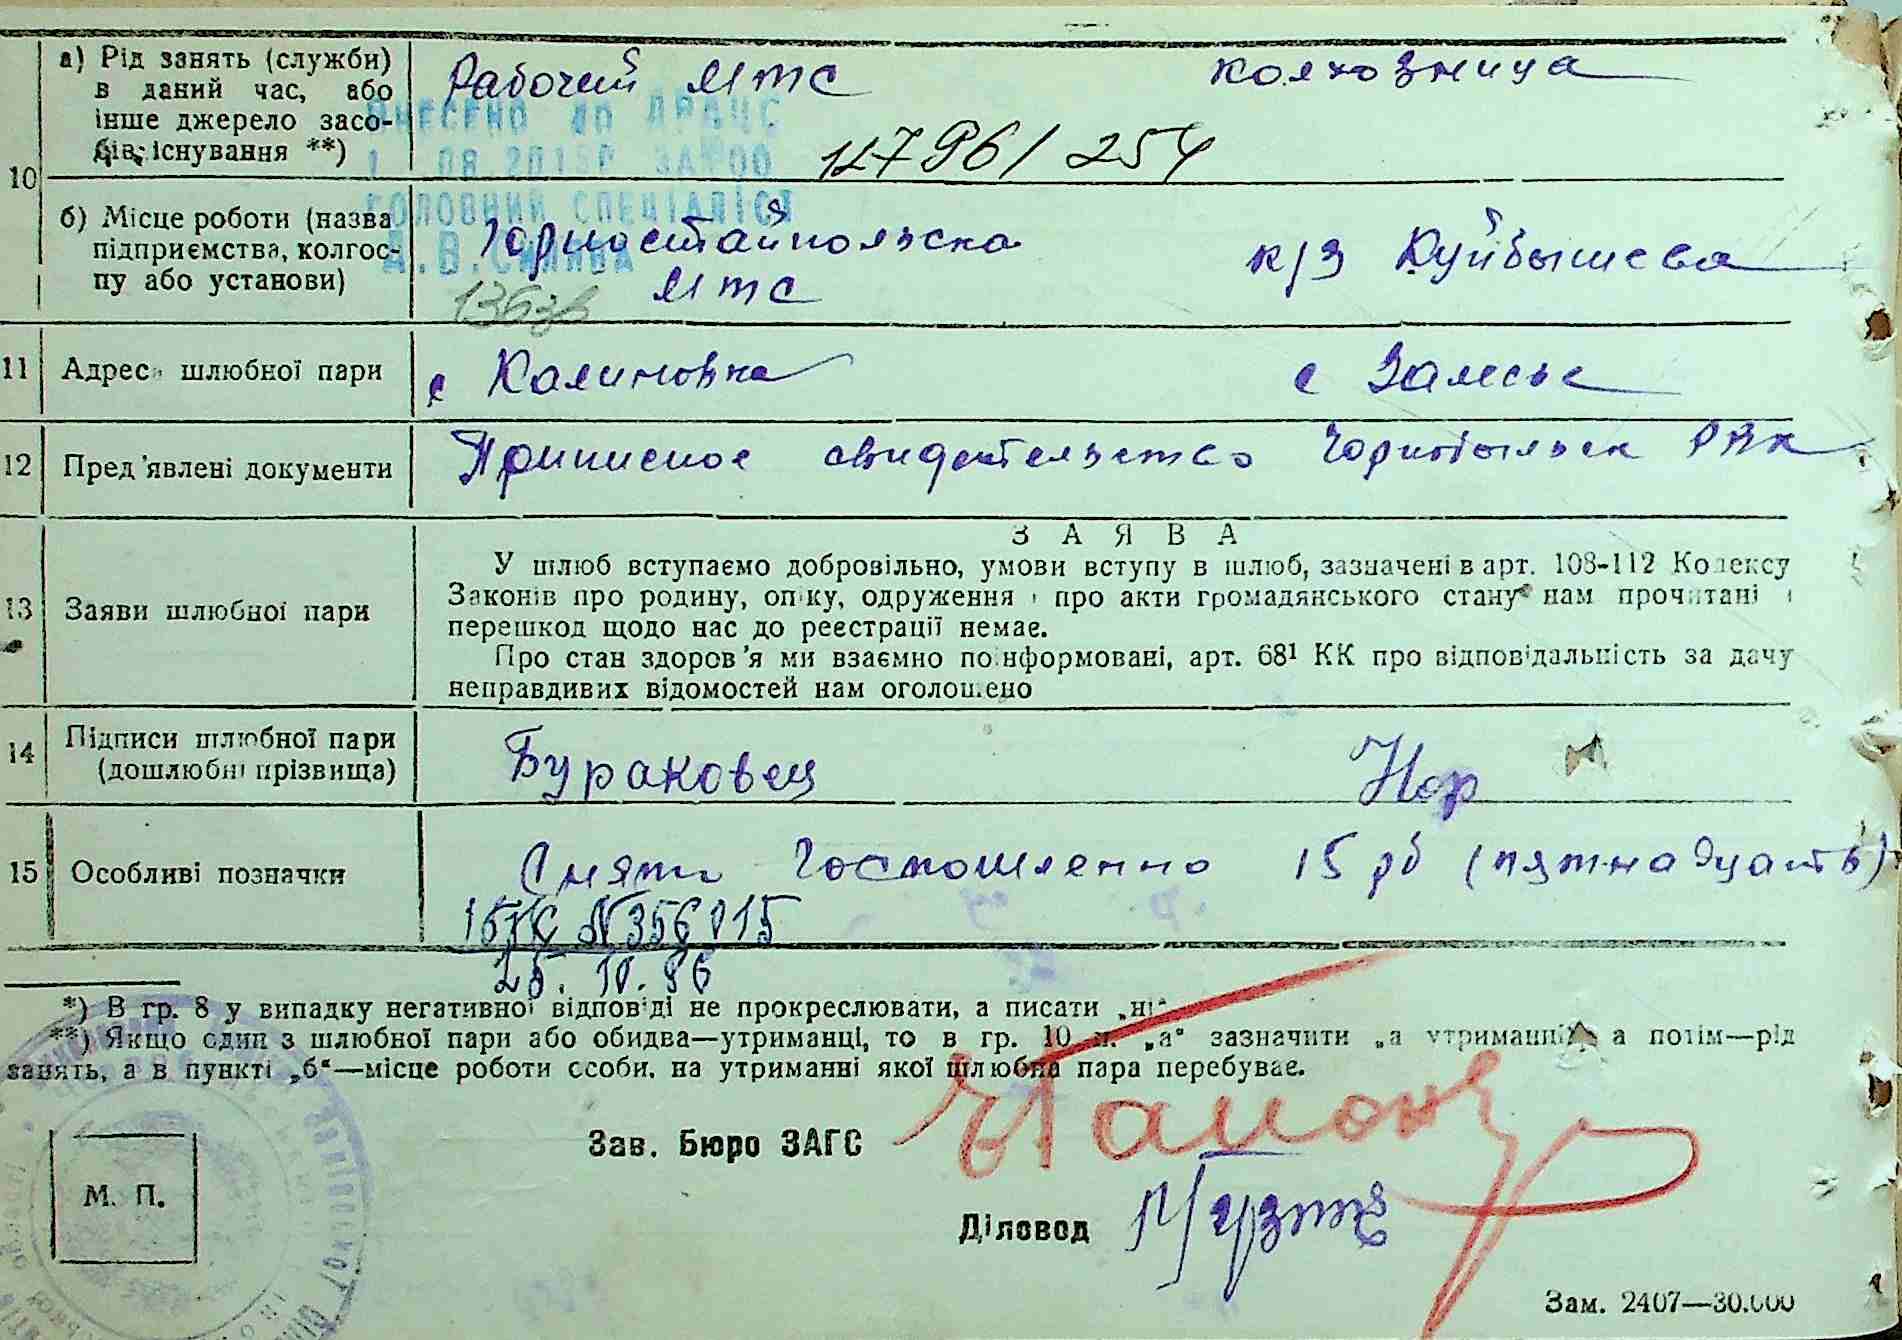 а) Рід занять (служби)
в даний час, або
інше джерело засо-
бів існування **)
Рабочий МТС
колхозница
ВНЕСЕНО до ДРАЦС
ГОЛОВНИЙ СПЕЦІАЛІСТ
10
б) Місце роботи (назва
підприємства, колгос-
пу або установи)
Горностайпольска
МТС
к/з Куйбышева
136зв
11
Адреса шлюбної пари
с Калиновка
с Залесье
12
Пред'явлені документи
Приписное свидетельство Чорнобыльск РВК
З А Я В А
13
Заяви шлюбної пари
У шлюб вступаємо добровільно, умови вступу в шлюб, зазначені в арт. 108-112 Кодексу
Законів про родину, опіку, одруження і про акти громадянського стану нам прочитані і
перешкод щодо нас до реєстрації немає.
Про стан здоров'я ми взаємно поінформовані, арт. 68¹ КК про відповідальність за дачу
неправдивих відомостей нам оголошено
14
Підписи шлюбної пари
(дошлюбні прізвища)
Бураковец
Нор
15
Особливі позначки
Снята госпошленно 15 рб (пятнадцать)
N 356015
25. IV. 86
*) В гр. 8 у випадку негативної відповіді не прокреслювати, а писати „ні“
**) Якщо один з шлюбної пари або обидва—утриманці, то в гр. 10 п. „а“ зазначити „а утриманні“, а потім—рід
занять, а в пункті „б“—місце роботи особи, на утриманні якої шлюбна пара перебуває.
Зав. Бюро ЗАГС
М. П.
Діловод
Зам. 2407—30.000